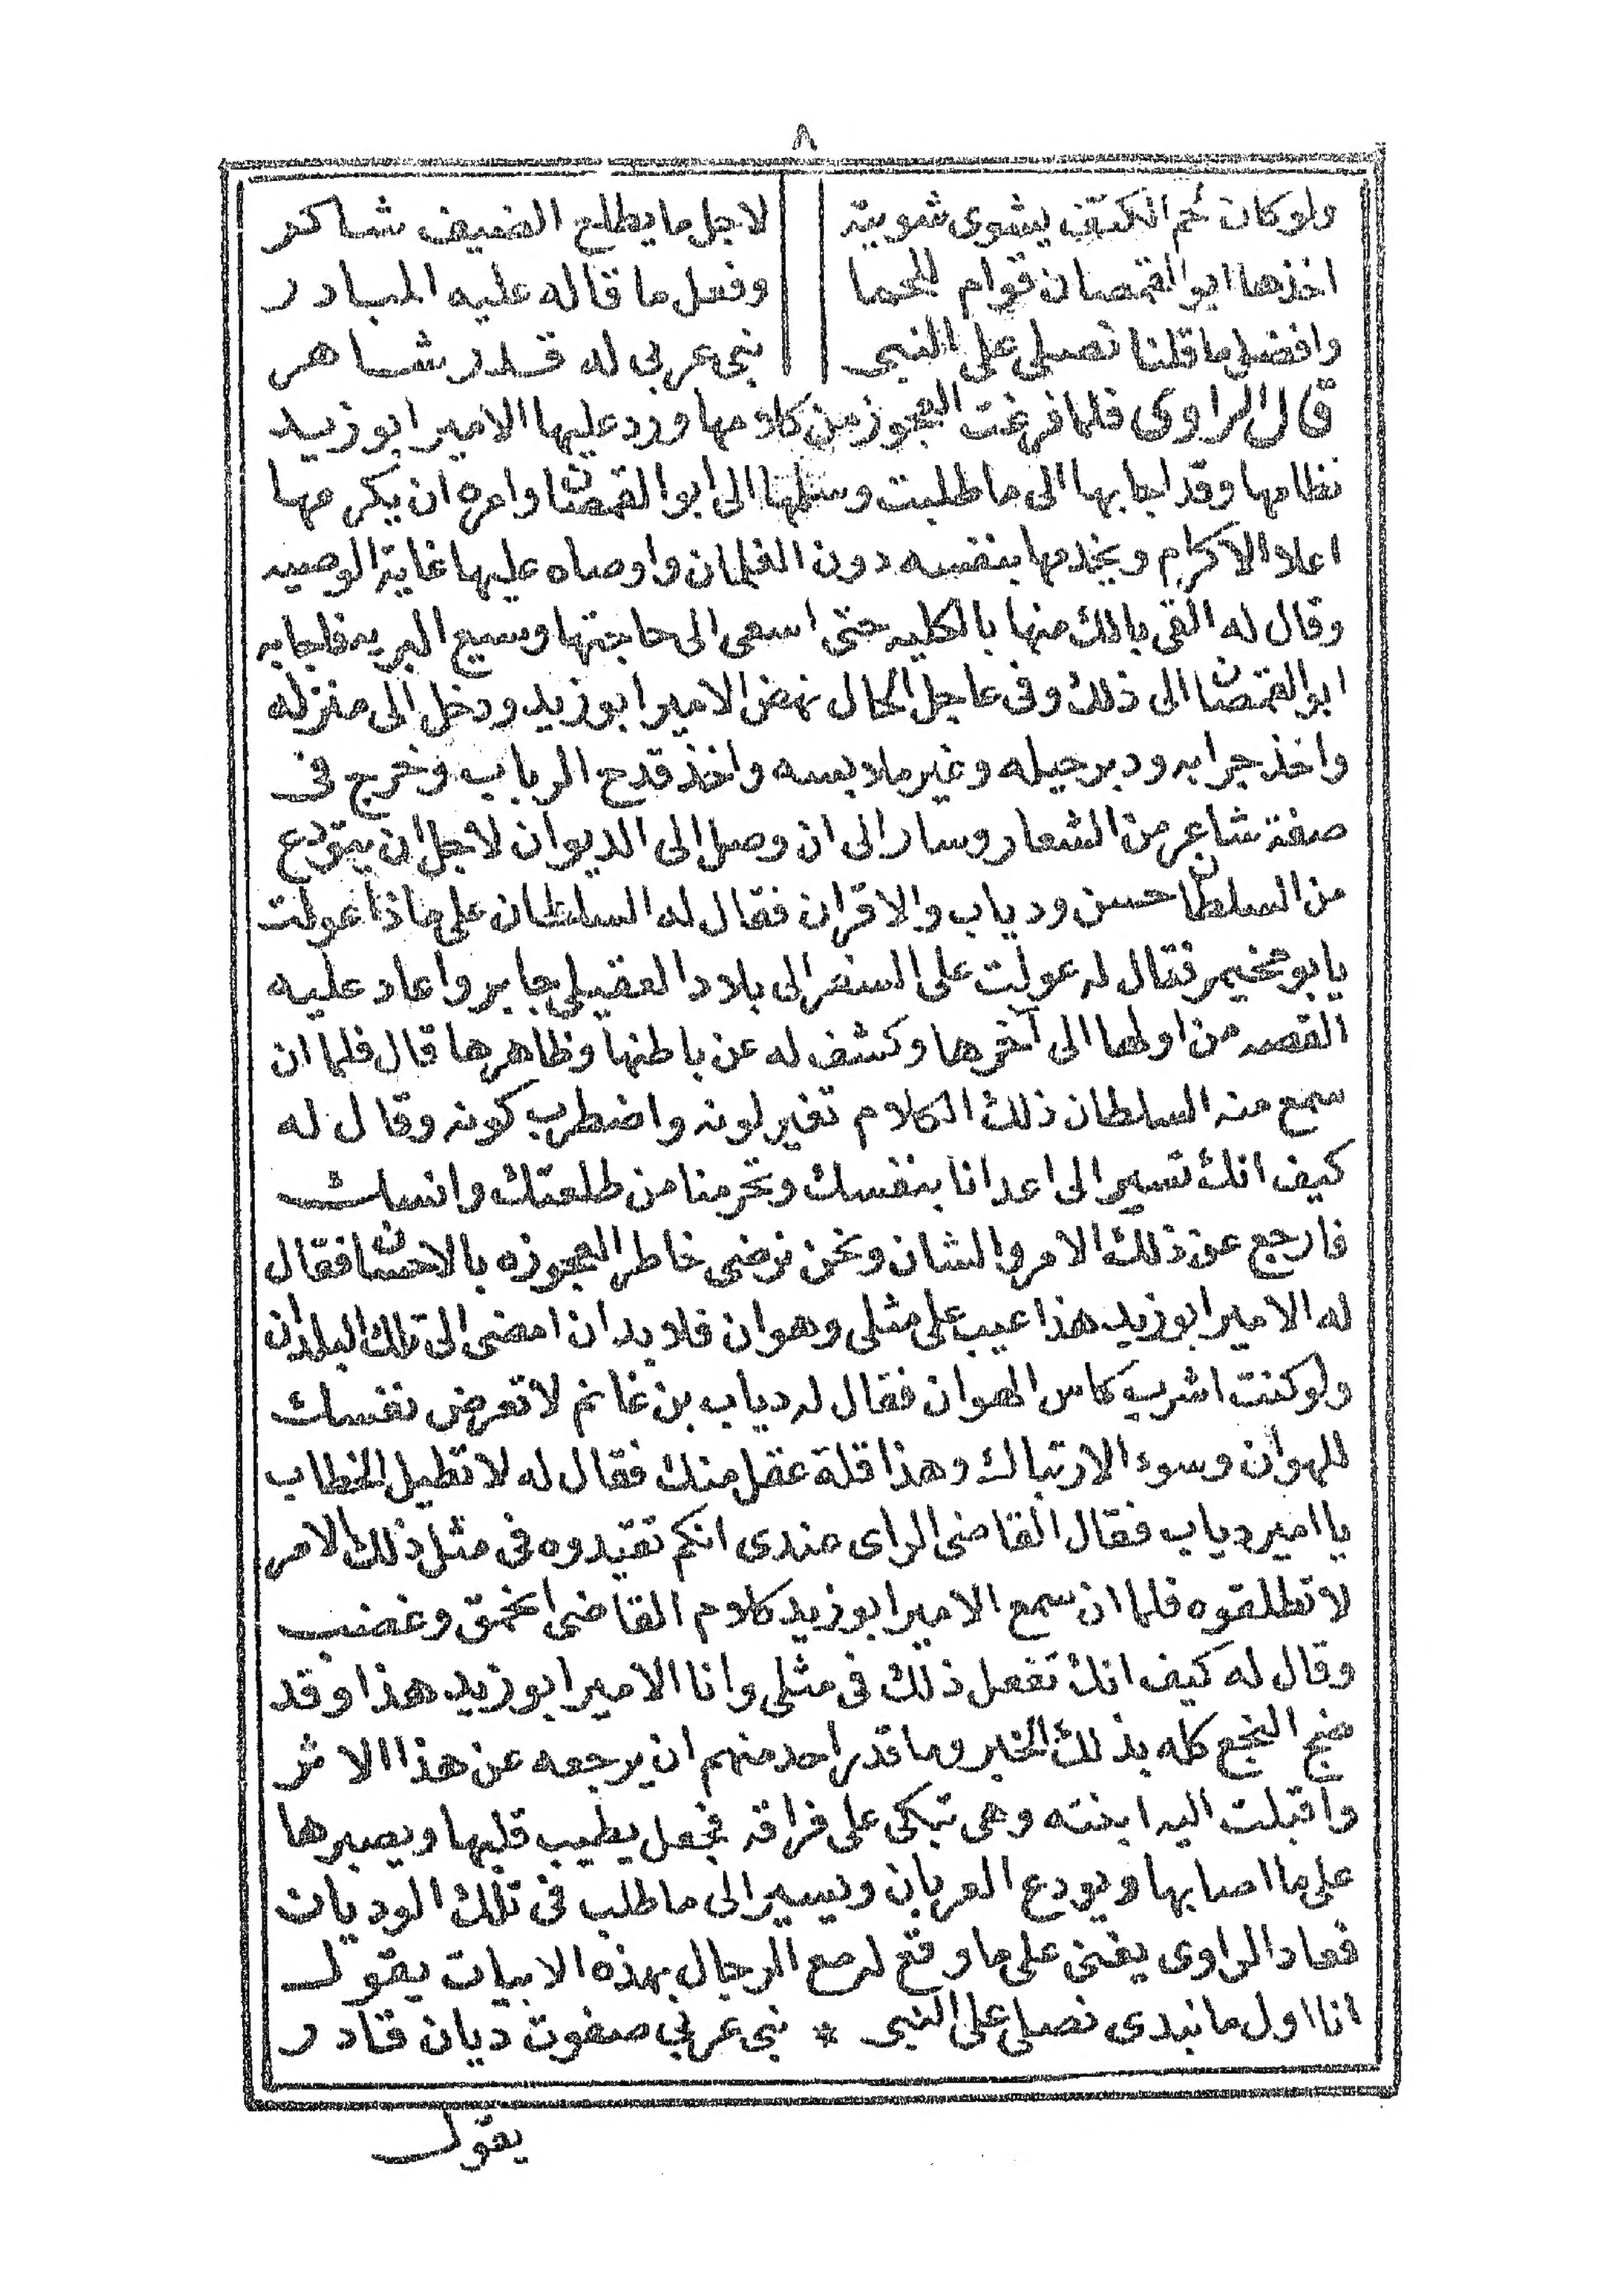 ٨
ولو كان لحم الكتف يشوى شويته لاجل ما يطلع الضيف شاكر
اخذها ابو القمصان قوام للحما وفعل ما قاله عليه المبادر
وافضل ما قلنا نصلى على النبى نبى عربى له قدر شاهر
قال الراوى فلما فرغت العجوز من كلامها ورد عليها الامير ابو زيد
نظامها وقد اجابها الى ما طلبت وسلمها الى ابو القمصان وامره ان يكرمها
اعلا الاكرام ويخدمها بنفسه دون الغلمان واوصاه عليها غاية الوصيه
وقال له القى بالك منها بالكليه حتى اسعى الى حاجتها وسيع البريه فاجابه
ابو القمصان الى ذلك وفى عاجل الحال نهض الامير ابو زيد ودخل الى منزله
واخذ جرابه ودبر حيله وغير ملابسه واخذ قدح الرباب وخرج فى
صفة شاعر من الشعار وسار الى ان وصل الى الديوان لاجل ان يتودع
من السلطان حسن ودياب والاقران فقال له السلطان على ماذا عولت
يا بو مخيمر فقال له عولت على السفر الى بلاد العقيلى جابر واعاد عليه
القصه من اولها الى آخرها وكشف له عن باطنها وظاهرها قال فلما ان
سمع منه السلطان ذلك الكلام تغير لونه واضطرب كونه وقال له
كيف انك تسير الى اعدانا بنفسك وتحرمنا من طلعتك وانسك
فارجع عن ذلك الامر والشان ونحن نرضى خاطر العجوزه بالاحسان فقال
له الامير ابو زيد هذا عيب على مثلى وهوان فلا بد ان امضى الى تلك البلدان
ولو كنت اشرب كاس الهوان فقال له دياب بن غانم لا تعرض نفسك
للهوان وسوء الارتباك وهذا قلة عقل منك فقال له لا تطيل الخطاب
يا امير دياب فقال القاضى الراى عندى انكم تقيدوه فى مثل ذلك الامر
لا تطلقوه فلما ان سمع الامير ابو زيد كلام القاضى انحمق وغضب
وقال له كيف انك تفعل ذلك فى مثلى وانا الامير ابو زيد هذا وقد
ضج النجع كله بذلك الخبر وما قدر احد منهم ان يرجعه عن هذا الاثر
واقبلت اليه ابنته وهى تبكى على فراقه فجعل يطيب قلبها ويصبرها
على ما اصابها ويودع العربان ويسير الى ما طلب فى تلك الوديان
فعاد الراوى يغنى على ما وقع له مع الرجال بهذه الابيات يقول
انا اول ما نبدى نصلى على النبى * نبى عربى صفوت ديان قادر
يقول